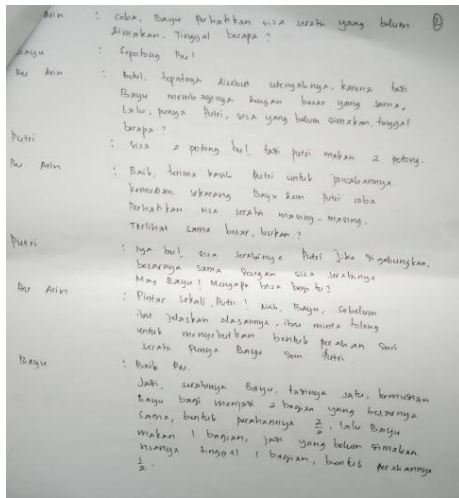 Arin : coba, Bayu perhatikan sisa serabi yang belum 2
dimakan. Tinggal berapa ?
Bayu : Sepotong Bu !
Bu Arin : Betul, tepatnya disebut setengahnya, karena tadi
Bayu membaginya dengan besar yang sama,
Lalu, punya Putri, sisa yang belum dimakan, tinggal
berapa ?
Putri : sisa 2 potong bu! tadi putri makan 2 potong.
Bu Arin : Baik, terima kasih Putri untuk jawabannya.
kemudian, sekarang Bayu dan Putri coba
perhatikan sisa serabi masing-masing.
Terlihat sama besar, bukan ?
Putri : Iya bu! sisa serabinya Putri jika digabungkan,
besarnya sama dengan sisa serabinya
Mas Bayu ! Mengapa bisa begitu?
Bu Arin : Pintar sekali, Putri ! Nah, Bayu, sebelum
ibu jelaskan alasannya, ibu minta tolong
untuk menyebutkan bentuk pecahan dari
serabi punya Bayu dan Putri.
Bayu : Baik Bu.
Jadi, serabinya Bayu, tadinya satu, kemudian
Bayu bagi menjadi 2 bagian yang besarnya
sama, bentuk pecahannya 2/2, lalu Bayu
makan 1 bagian, jadi yang belum dimakan
sisanya tinggal 1 bagian, bentuk pecahannya
1/2.